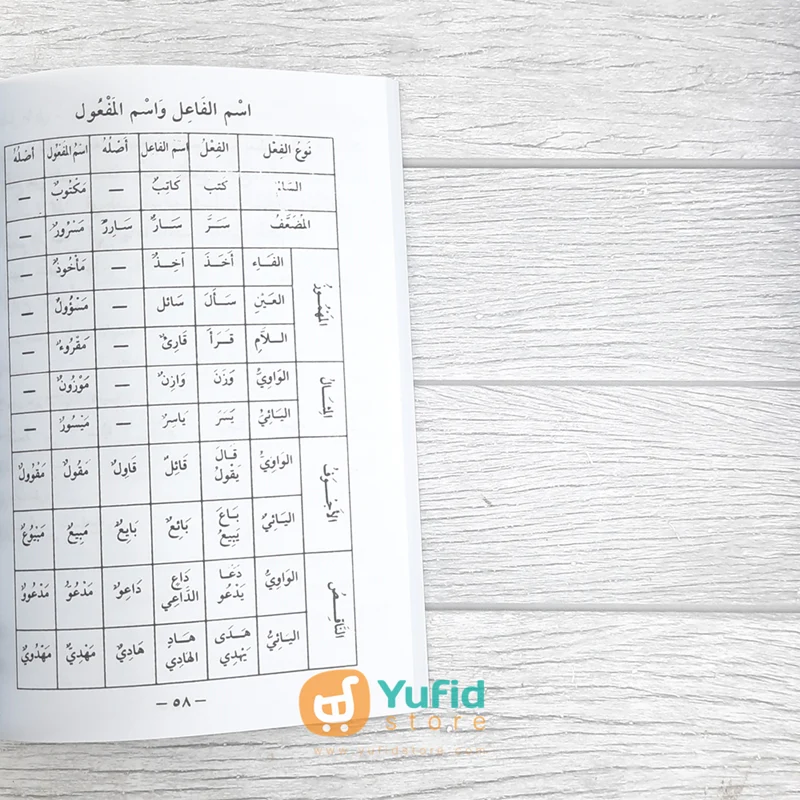 اسْم الفَاعِل وَاسْم المَفْعُول
نَوع الفِعْل الفِعْلُ اسم الفَاعل أصْلُهُ اسْمُ المَفعُول أصْلُهُ
السَّالمُ كَتب كَاتِبٌ — مَكْتُوبٌ —
المُضَعَّفُ سَرَّ سَارٌّ سَارِرٌ مَسْرُورٌ —
المَهْمُوزُ
الفَاءِ أخَذَ آخِذٌ — مَأْخُوذٌ —
العَيْنِ سَألَ سَائل — مَسْؤُولٌ —
الـلاَّمِ قَرَأ قَارِئٌ — مَقْرُوءٌ —
المِثَالُ
الوَاوِيُّ وَزَنَ وَازِنٌ — مَوْزُونٌ —
اليَائِيُّ يَسَرَ يَاسِرٌ — مَيْسُورٌ —
الأَجْوَفُ
الوَاوِيُّ قَالَ يَقُولُ قَائِلٌ قَاوِلٌ مَقُولٌ مَقْوُولٌ
اليَائِيُّ بَاعَ يَبِيعُ بَائِعٌ بَايِعٌ مَبِيعٌ مَبْيُوعٌ
النَّاقِصُ
الوَاوِيُّ دَعَا يَدْعُو دَاعٍ الدَّاعِي دَاعِوٌ مَدْعُوٌّ مَدْعُووٌ
اليَائِيُّ هَدَى يَهْدِي هَادٍ الهَادِي هَادِيٌ مَهْدِيٌّ مَهْدُويٌ
– ٥٨ –
Yufid
store
www.yufidstore.com